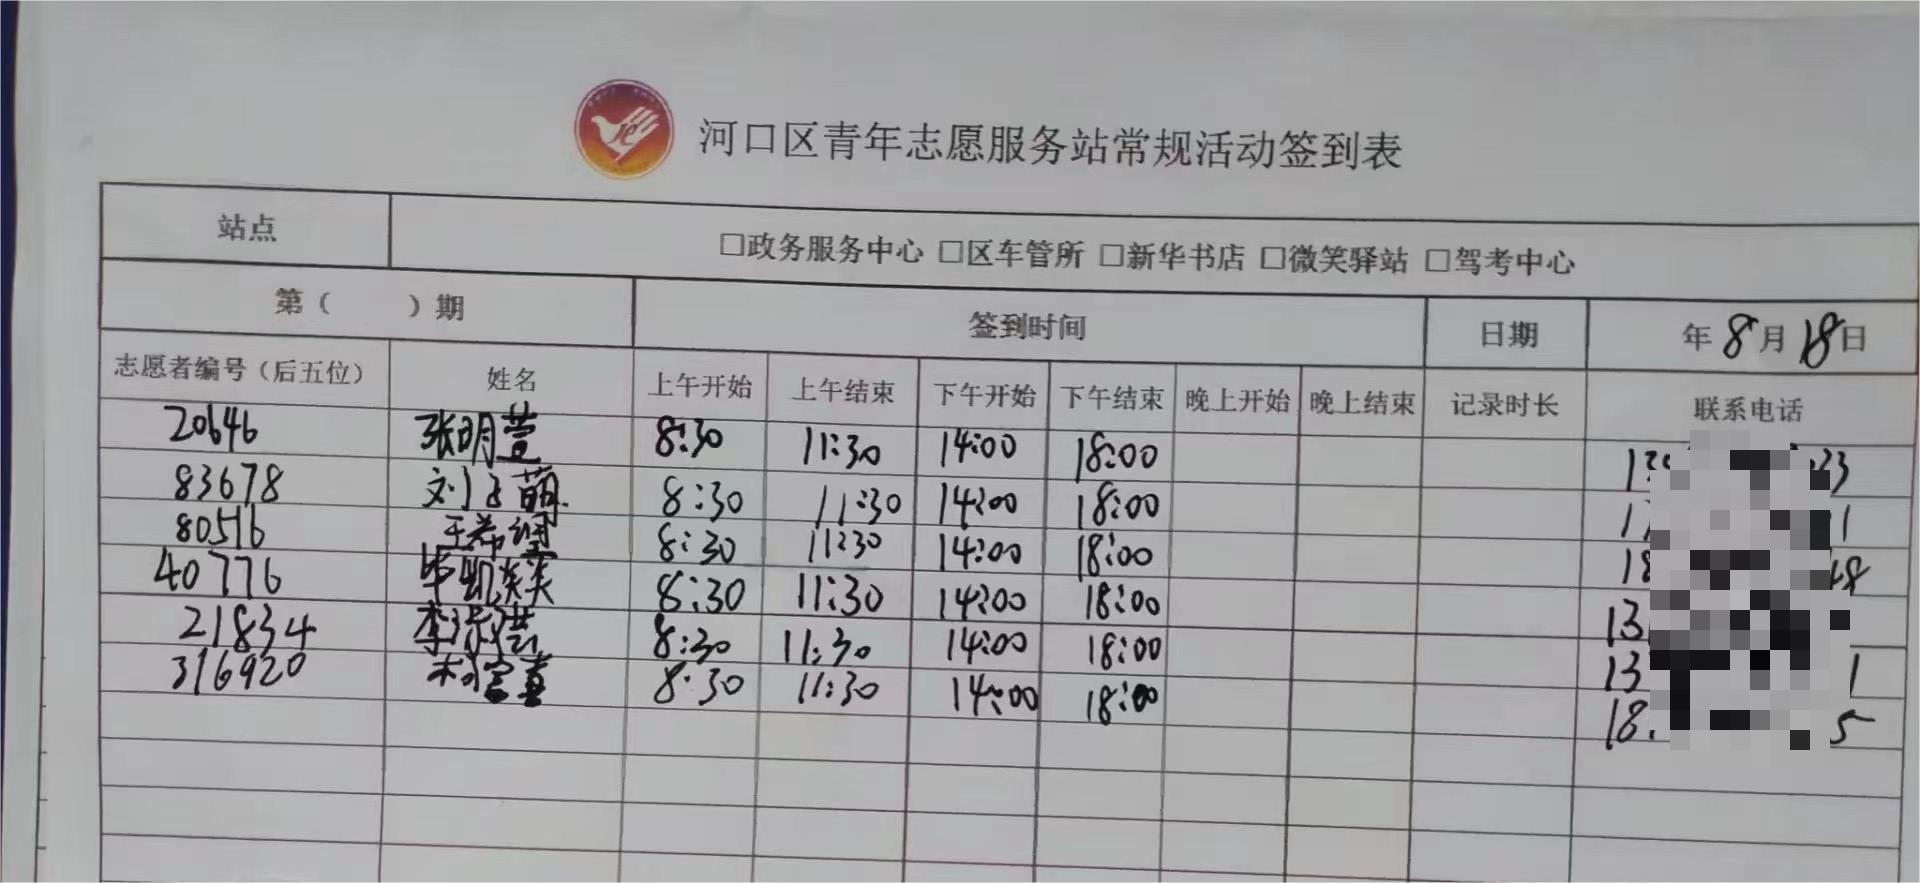 河口区青年志愿服务站常规活动签到表
站点 □政务服务中心 □区车管所 □新华书店 □微笑驿站 □驾考中心
第（ ）期 签到时间 日期 年8月18日
志愿者编号（后五位） 姓名 上午开始 上午结束 下午开始 下午结束 晚上开始 晚上结束 记录时长 联系电话
20646 张明萱 8:30 11:30 14:00 18:00
83678 刘子萌 8:30 11:30 14:00 18:00
80516 王希望 8:30 11:30 14:00 18:00
40776 8:30 11:30 14:00 18:00 13
21834 8:30 11:30 14:00 18:00 13 1
316920 8:30 11:30 14:00 18:00 18 5